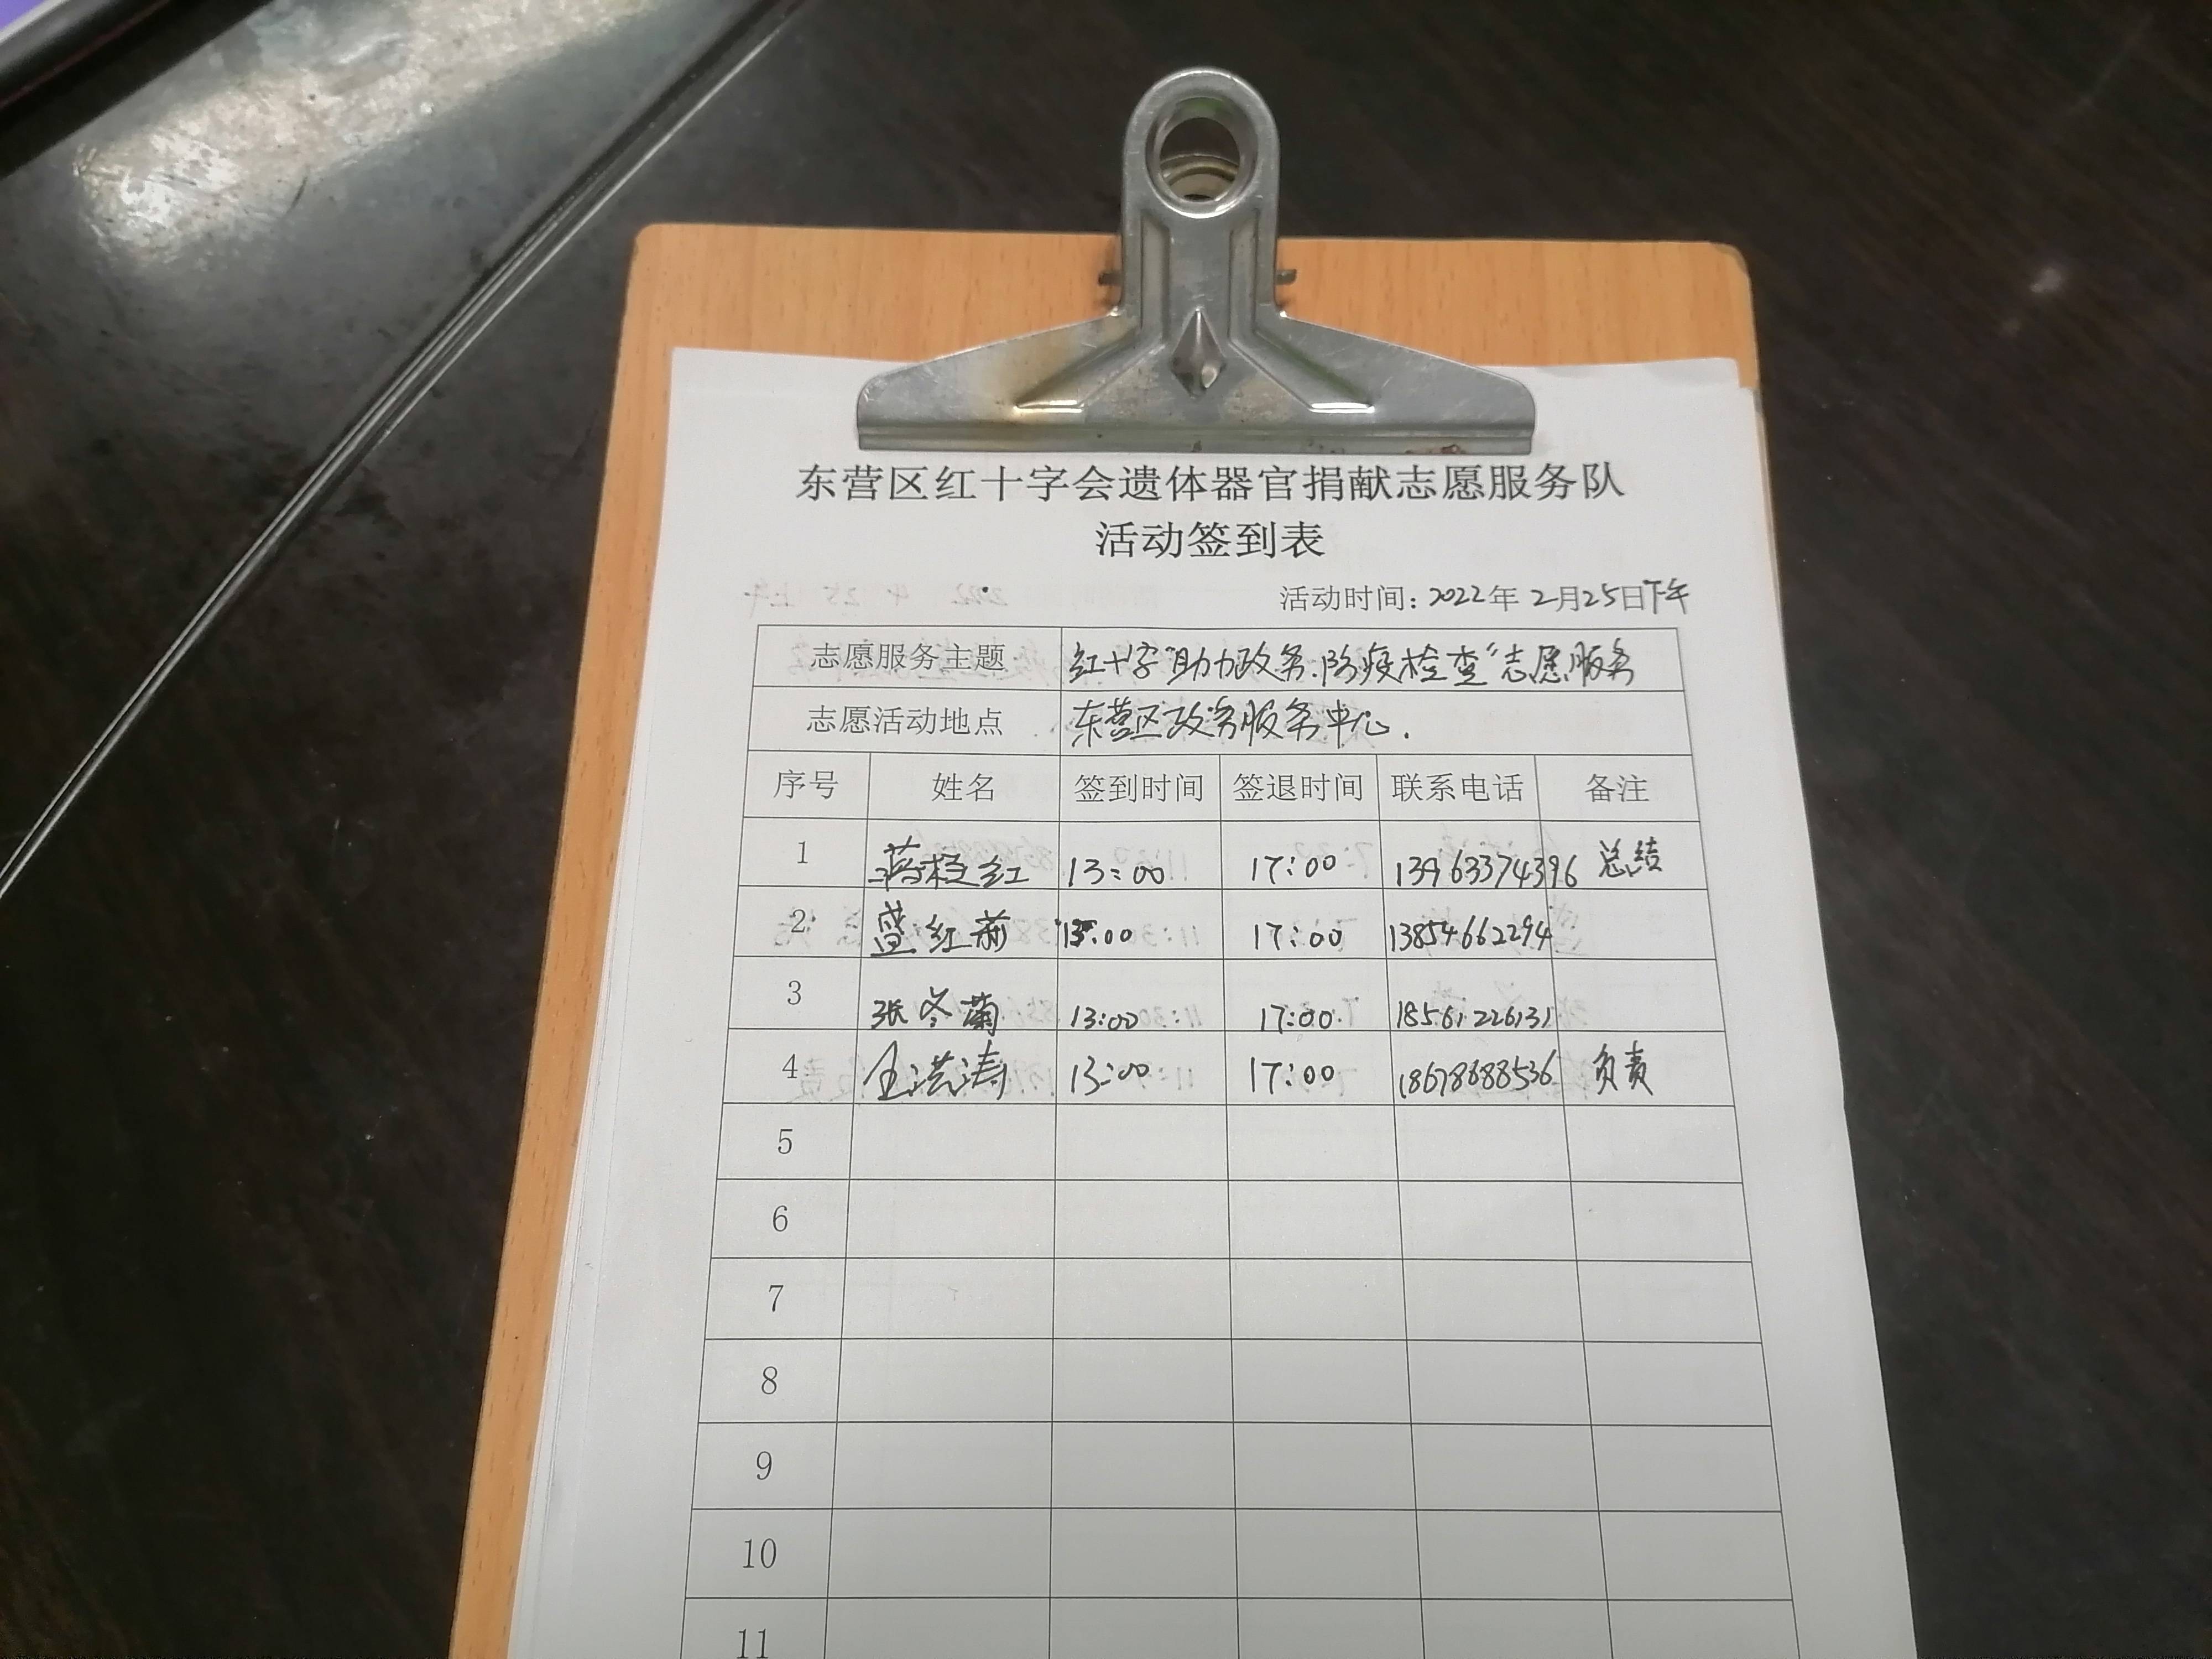 东营区红十字会遗体器官捐献志愿服务队
活动签到表
活动时间：2022年 2月25日下午
志愿服务主题 红十字"助力政务.防疫检查"志愿服务
志愿活动地点 东营区政务服务中心.
序号 姓名 签到时间 签退时间 联系电话 备注
1 蒋桂红 13:00 17:00 13963374396 总结
2 盖红莉 13:00 17:00 13854662294
3 张冬菊 13:00 17:00 18561226131
4 洪涛 13:00 17:00 18678688536 负责
5
6
7
8
9
10
11